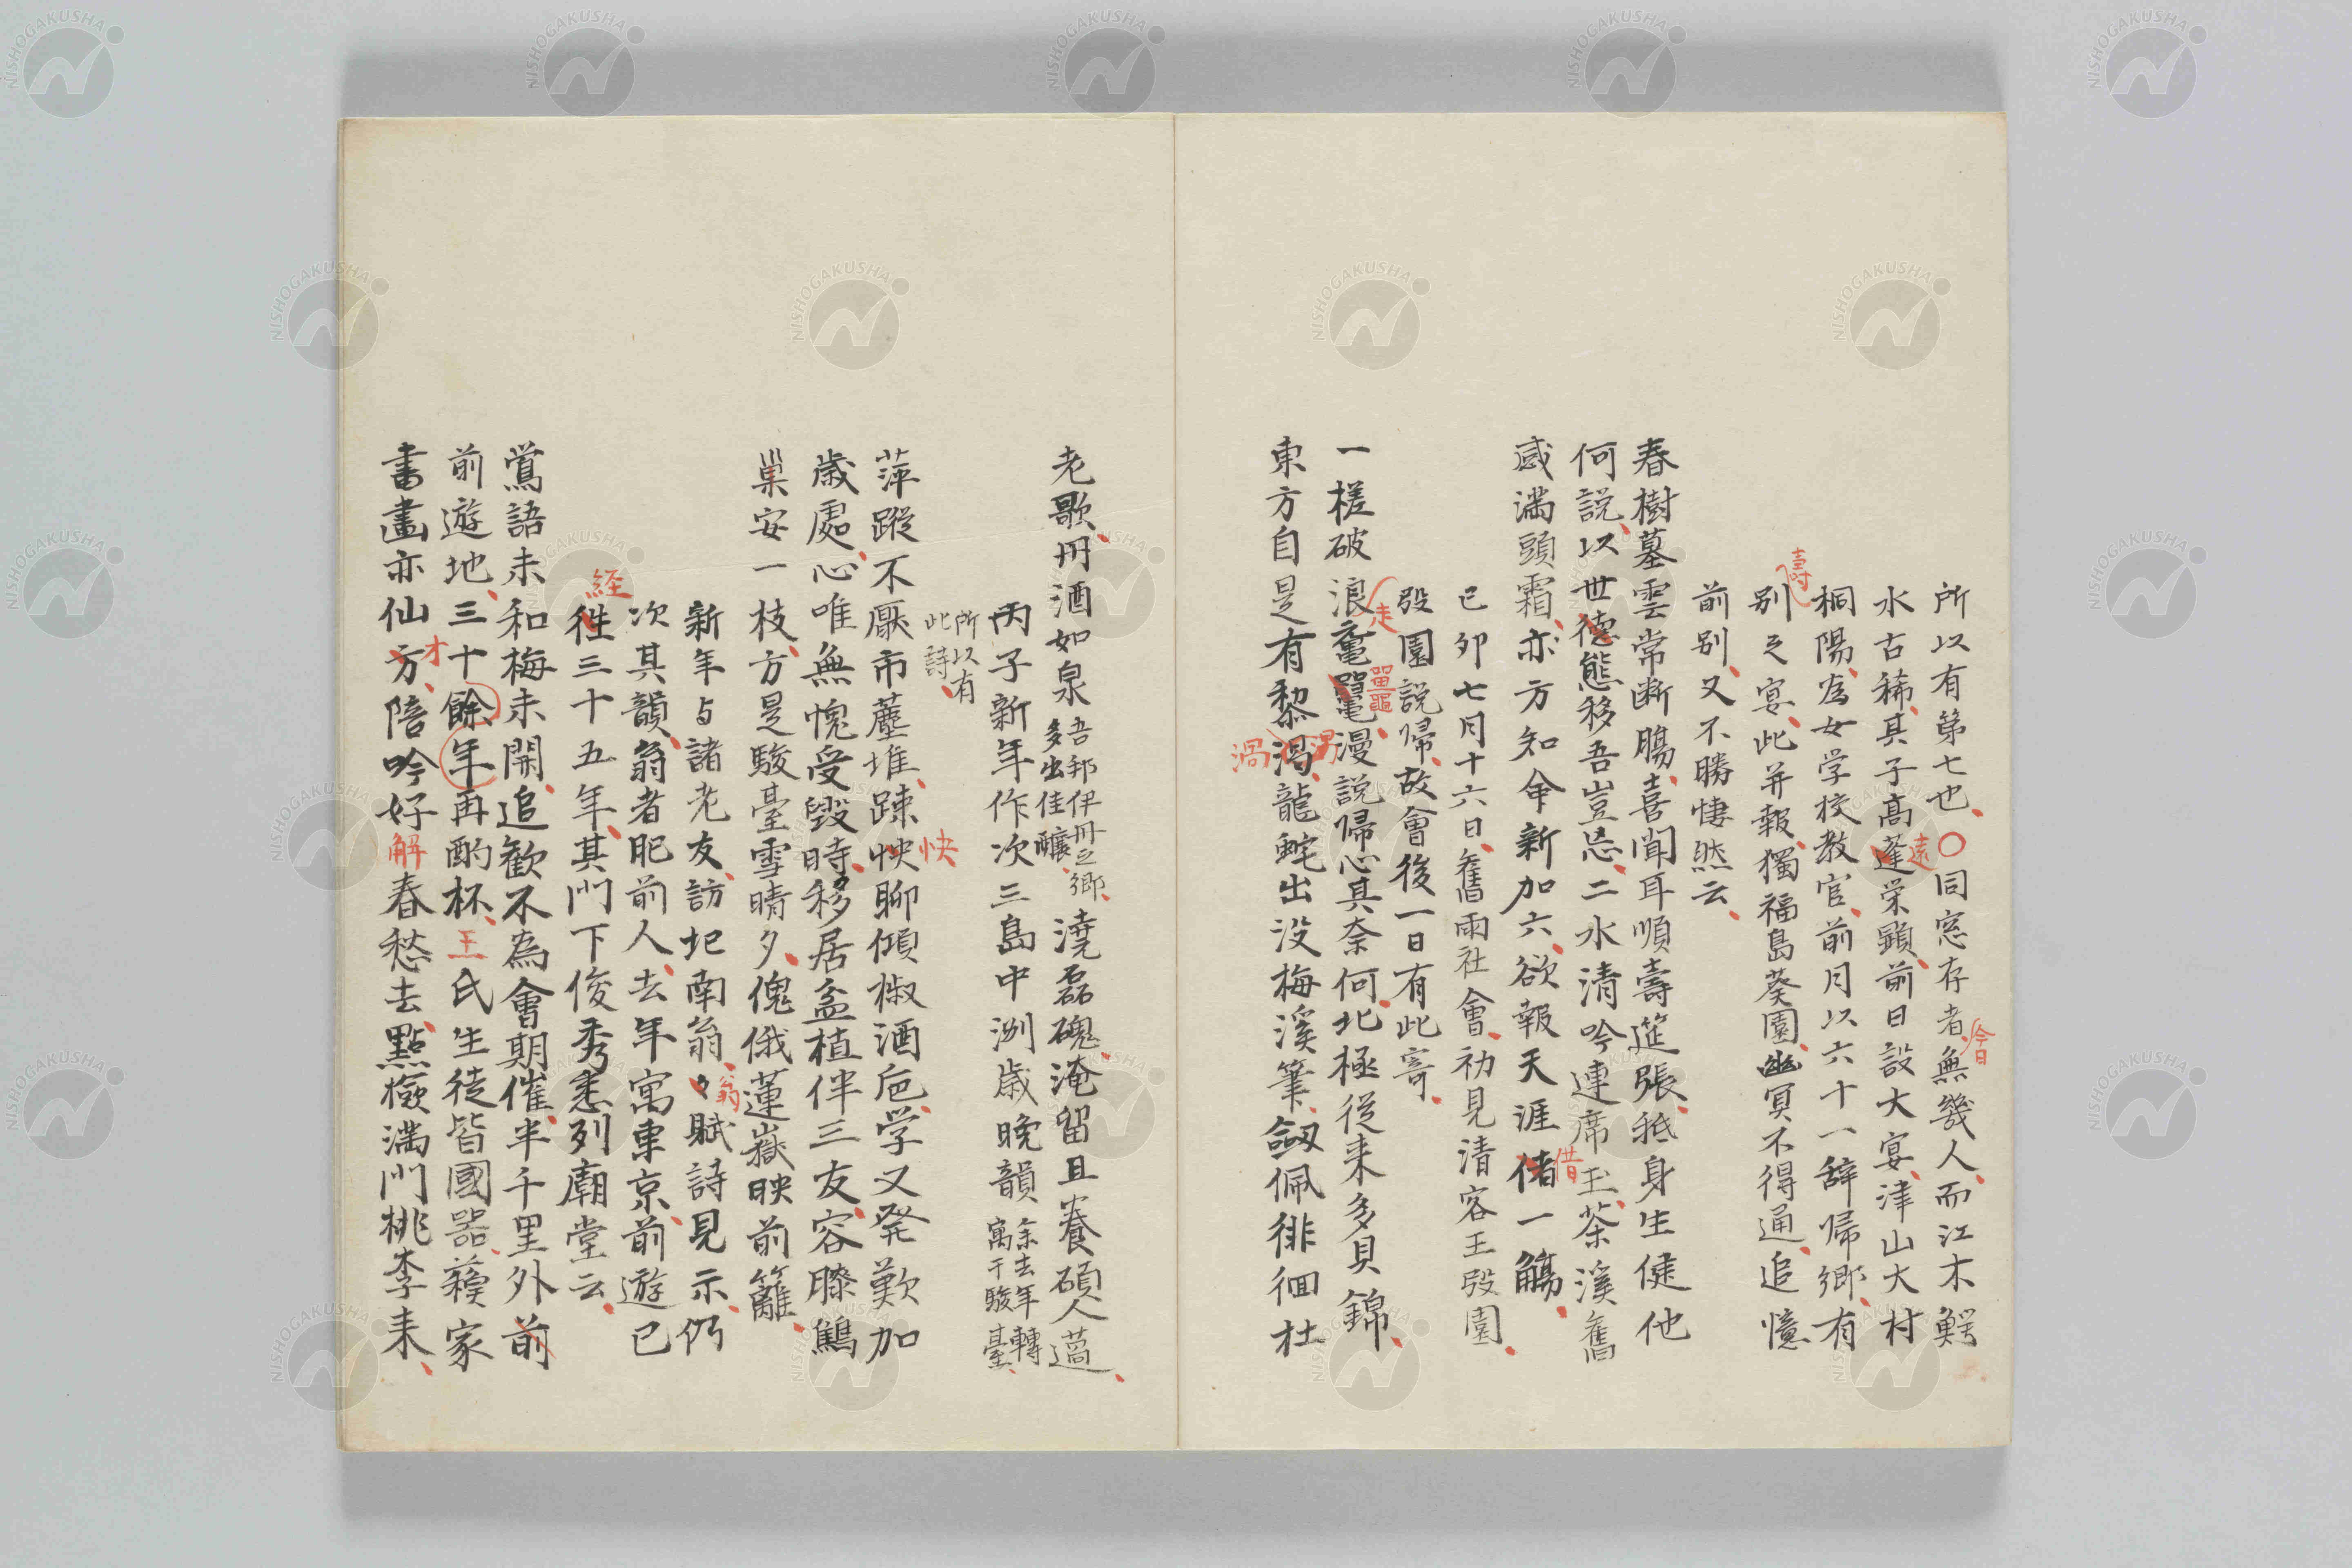 所以有第七也、〇同窓存者、今日無幾人、而江木鰐
水古稀、其子高蓬遠栄顕、前日設大宴、津山大村
桐陽、為女学校教官、前月以六十一辞帰郷、有
寿別之宴、此并報、獨福島葵園、幽冥不得通、追憶
前別、又不勝悽然云、
春樹墓雲常断腸、喜聞耳順壽筵張、秪身生健他
何説、以世徳態移吾豈忘、二水清吟連席上、茶溪舊
感満頭霜、亦方知命新加六、欲報天涯偖借一觴、
己卯七月十六日、舊雨社會、初見清客王㱾園、
㱾園説帰、故會後一日有此寄、
一槎破浪走鼋鼉、漫説帰心其奈何、北極従来多貝錦、
東方自是有黎渦、龍蛇出没梅溪筆、劔佩徘徊杜
老歌、丹酒如泉吾邦伊丹之郷、多出佳釀、澆磊磈、淹留且養碩人薖、
丙子新年作次三島中洲歳晩韻 余去年轉寓于駿臺、
所以有此詩、
萍蹤不厭市塵堆、疎怏快聊傾椒酒巵、学又発歎加
歳處、心唯無愧受毀時、移居盆植伴三友、容膝鷦
巣安一枝、方是駿臺雪晴夕、傀俄蓮嶽映前籬、
新年与諸老友、訪圯南翁、々翁賦詩見示、仍
次其韻、翁者肥前人、去年寓東京、前遊已
経徃三十五年、其門下俊秀悉列廟堂云、
鴬語未和梅未開、追歓不為會期催、半千里外前
前遊地、三十餘年再酌杯、王氏生徒皆國器、蘓家
書畫亦仙方才、陪吟好解春愁去、點檢満門桃李来、